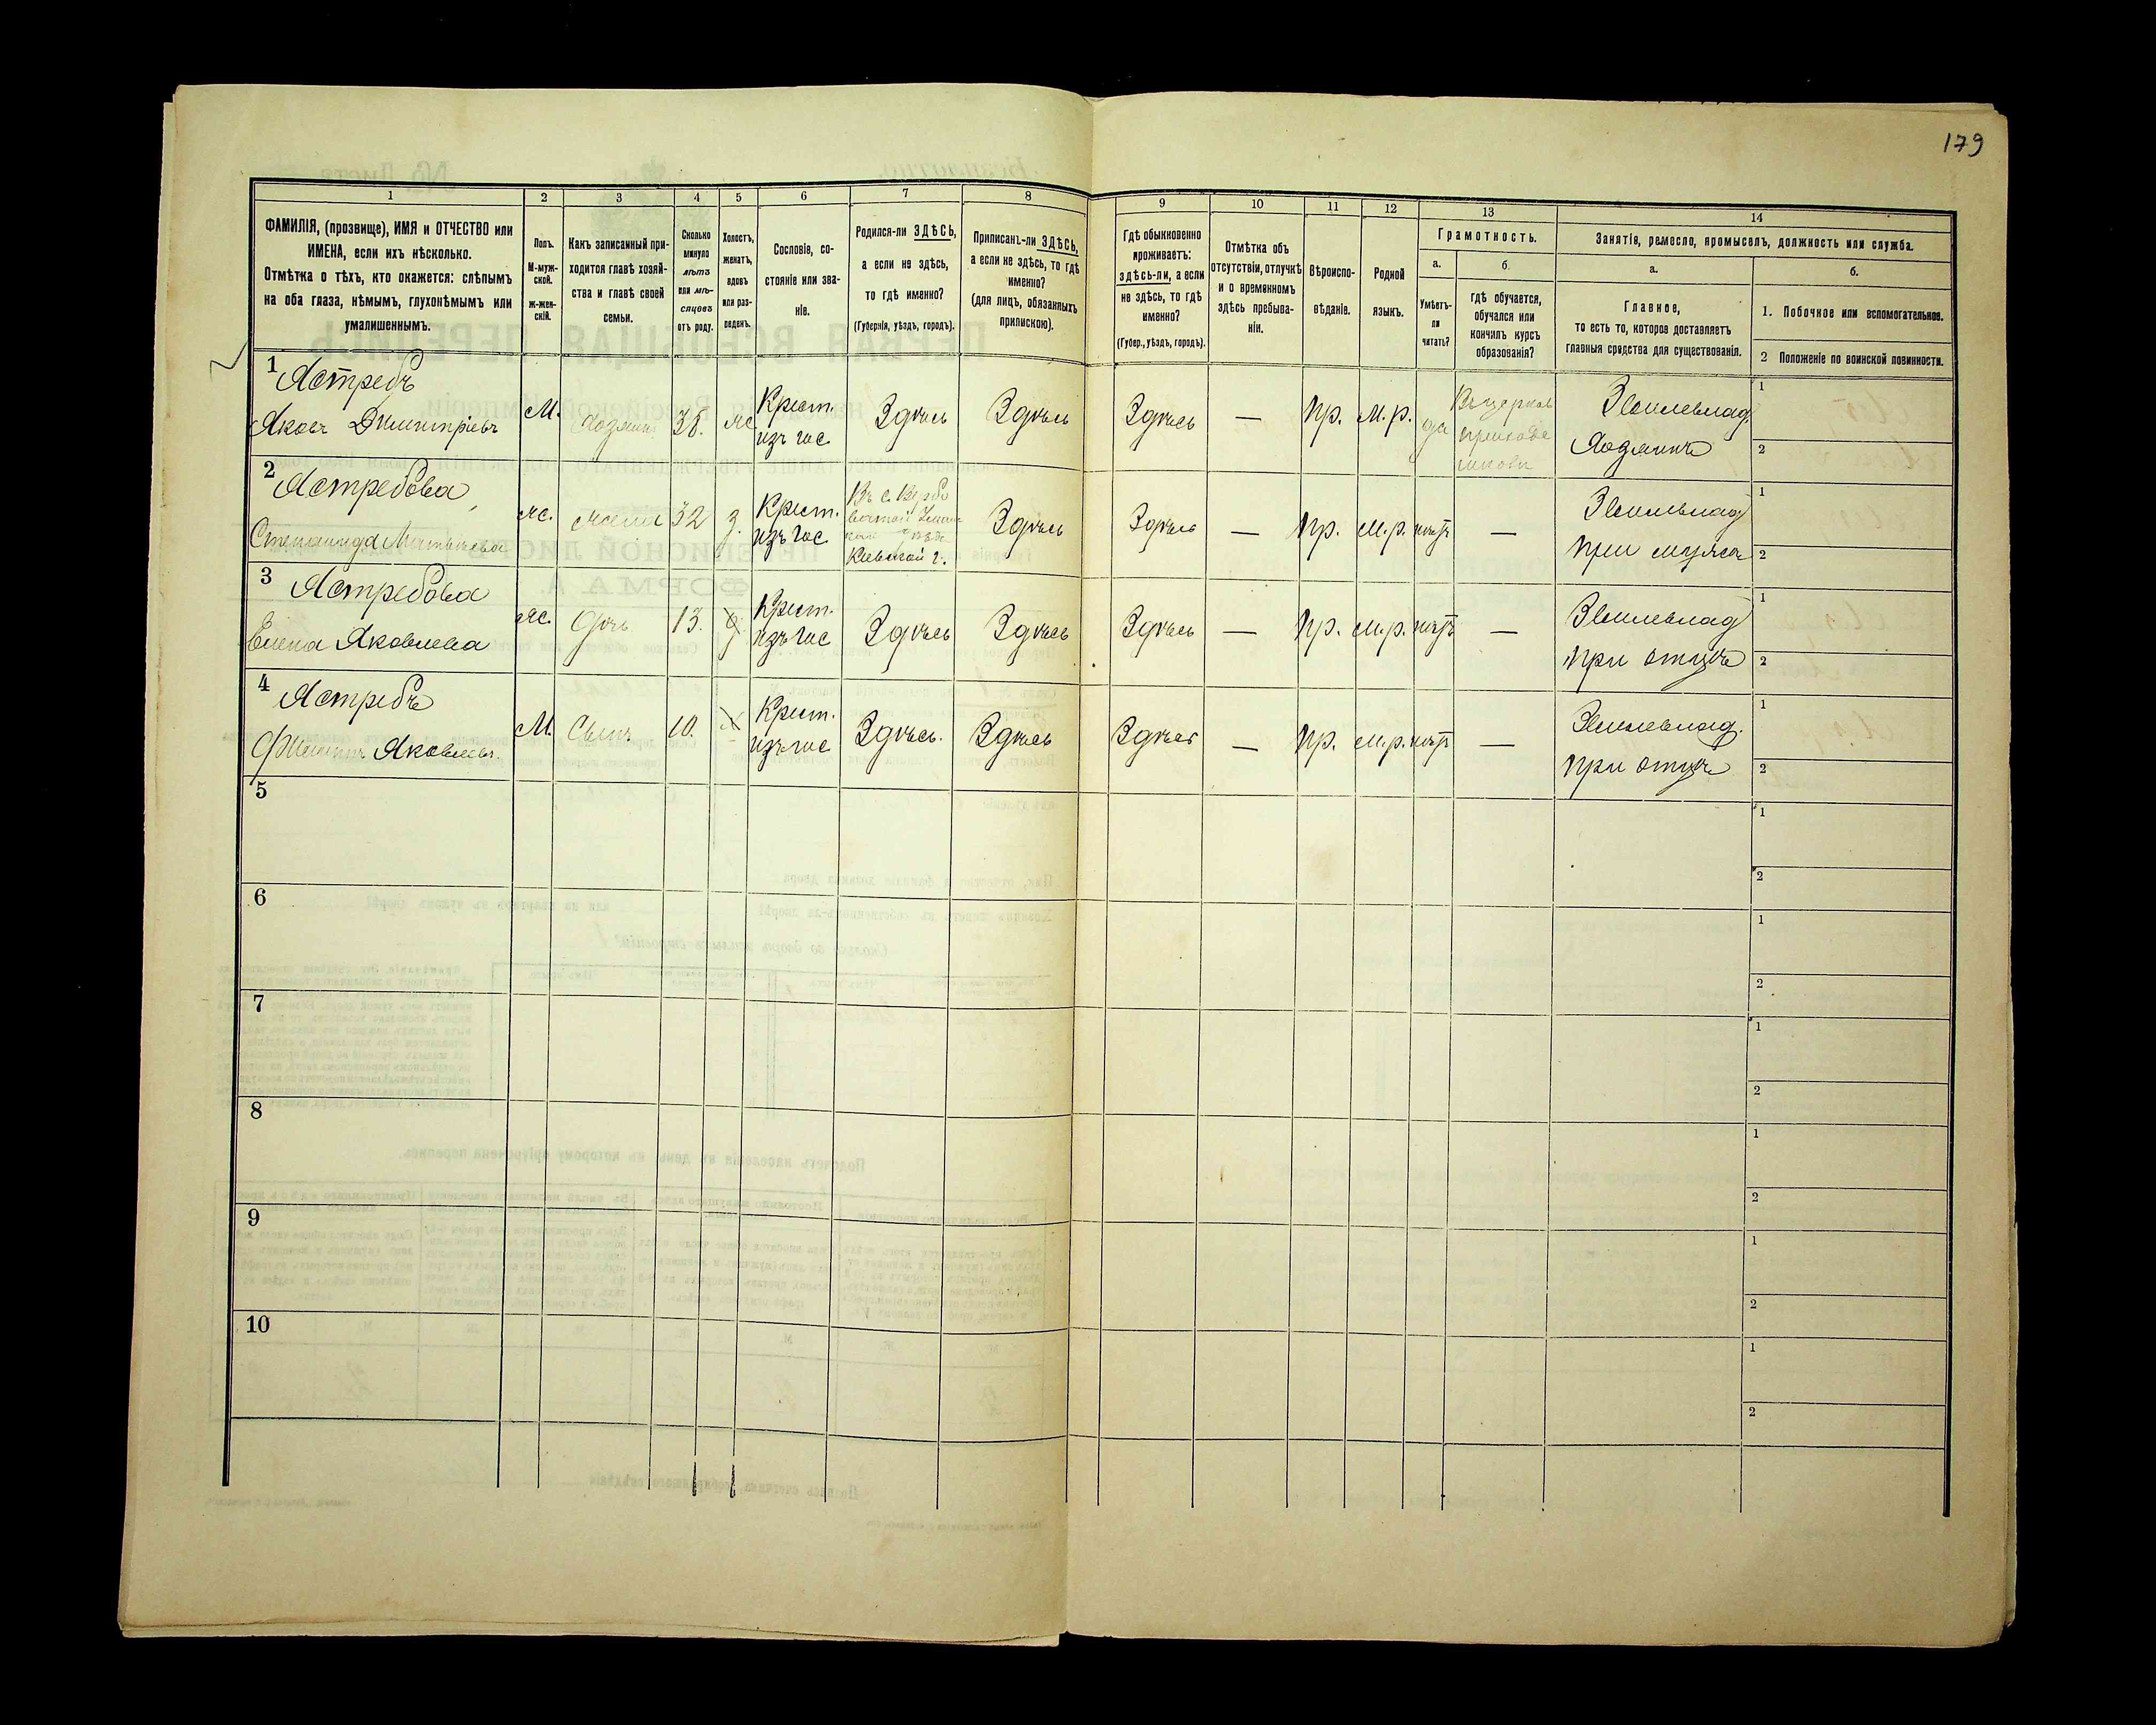 179
1
2
3
4
5
6
7
8
9
10
11
12
13
14
ФАМИЛІЯ, (прозвище), ИМЯ и ОТЧЕСТВО или
ИМЕНА, если ихъ нѣсколько.
Отмѣтка о тѣхъ, кто окажется: слѣпымъ
на оба глаза, нѣмымъ, глухонѣмымъ или
умалишеннымъ.
Полъ.
М-муж-
ской.
ж-жен-
скій.
Какъ записанный при-
ходится главѣ хозяй-
ства и главѣ своей
семьи.
Сколько
минуло
лѣтъ
или мѣ-
сяцевъ
отъ роду.
Холостъ,
женатъ,
вдовъ
или раз-
веденъ.
Сословіе, со-
стояніе или зва-
ніе.
Родился-ли ЗДѢСЬ,
а если не здѣсь,
то гдѣ именно?
(Губернія, уѣздъ, городъ).
Приписанъ-ли ЗДѢСЬ,
а если не здѣсь, то гдѣ
именно?
(для лицъ, обязанныхъ
припискою).
Гдѣ обыкновенно
проживаетъ:
здѣсь-ли, а если
не здѣсь, то гдѣ
именно?
(Губер., уѣздъ, городъ).
Отмѣтка объ
отсутствіи, отлучкѣ
и о временномъ
здѣсь пребыва-
ніи.
Вѣроиспо-
вѣданіе.
Родной
языкъ.
Грамотность.
а.
Умѣетъ-
ли
читать?
б.
гдѣ обучается,
обучался или
кончилъ курсъ
образованія?
Занятія, ремесло, промыселъ, должность или служба.
а.
Главное,
то есть то, которое доставляетъ
главныя средства для существованія.
б.
1. Побочное или вспомогательное.
2 Положеніе по воинской повинности.
1 Ястребъ
Яковъ Дмитріевъ
М.
Хозяинъ
38.
ж
Крест.
изъ гос.
Здѣсь
Здѣсь
Здѣсь
—
Пр.
М.р.
да
Въ церков
приход
школѣ
Землевлад.
Хозяинъ
1
2
2 Ястребова
Степанида Матвѣева
ж.
жена
32
з.
Крест.
изъ гос
Въ с.
Кіевской г.
Здѣсь
Здѣсь
—
Пр.
М.р.
нѣтъ
—
Землевлад
при мужѣ
1
2
3 Ястребова
Елена Яковлева
ж.
Дочь
13.
Крест.
изъ гос
Здѣсь
Здѣсь
Здѣсь
—
Пр.
М.р.
нѣтъ
—
Землевлад
при отцѣ
1
2
4 Ястребъ
Яковлевъ.
М.
Сынъ
10.
Крест.
изъ гос
Здѣсь.
Здѣсь
Здѣсь
—
Пр.
М.р.
нѣтъ
—
Землевлад.
при отцѣ
1
2
5
1
2
6
1
2
7
1
2
8
1
2
9
1
2
10
1
2